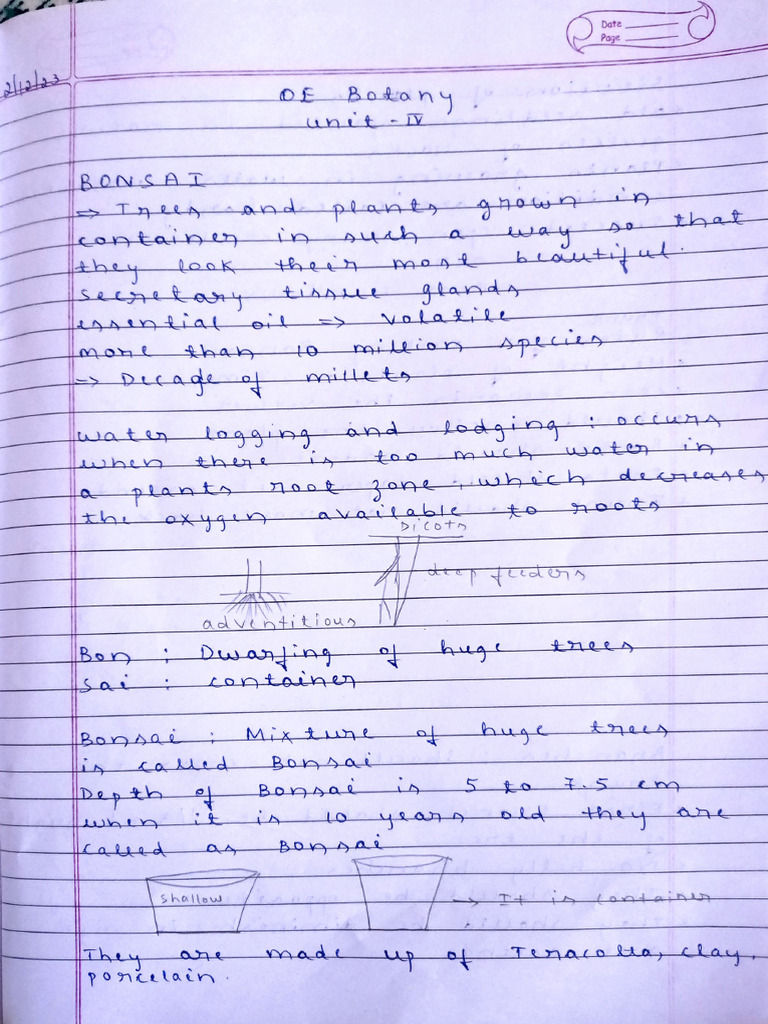 Date
Page
2/12/23
OE Botany
Unit - IV
BONSAI
⇒ Trees and plants grown in
container in such a way so that
they look their most beautiful.
secretary tissue glands
essential oil ⇒ volatile
more than 10 million species
⇒ Decade of millets
water logging and lodging : occurs
when there is too much water in
a plants root zone, which decreases
the oxygen available to roots
Dicots
deep feeders
adventitious
Bon : Dwarfing of huge trees
Sai : container
Bonsai : Mixture of huge trees
is called Bonsai
Depth of Bonsai is 5 to 7.5 cm
when it is 10 years old they are
called as Bonsai
shallow
→ It is container
They are made up of Teracotta, clay,
porcelain.